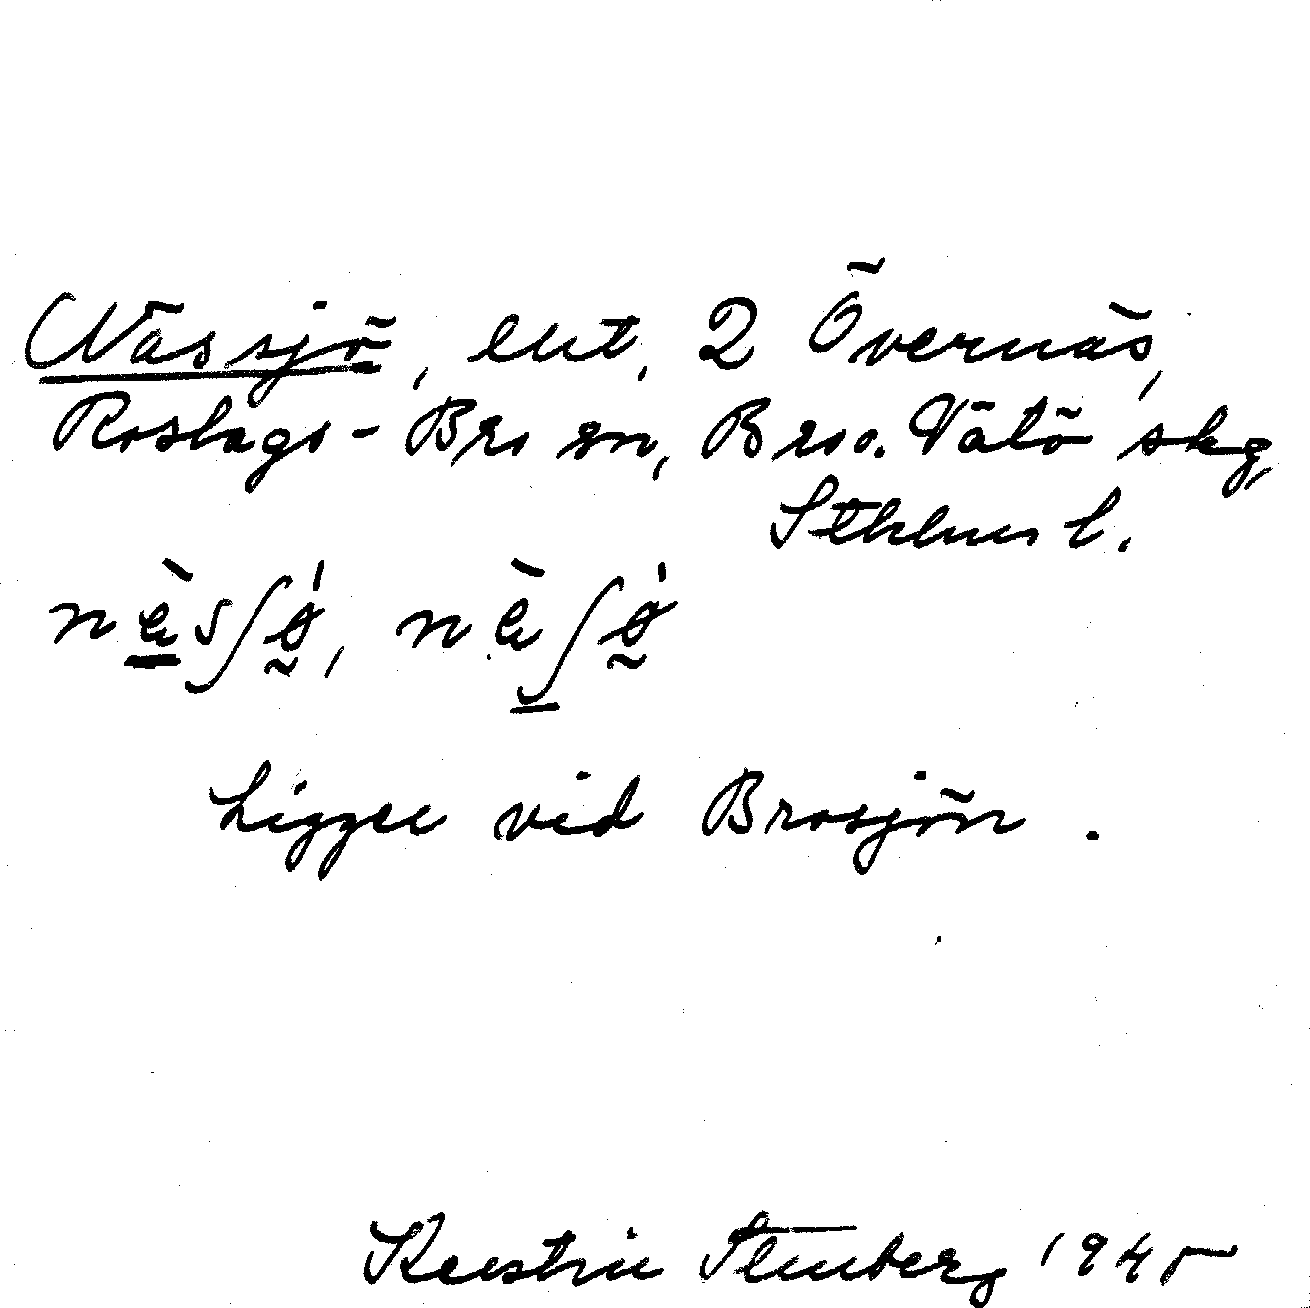 Nässjö, lht, 2 Övernäs,
Roslags-Bro sn, Bro o. Vätö skg,
Sthlms l.
Ligger vid Brosjön.
Kerstin Stenberg 1945